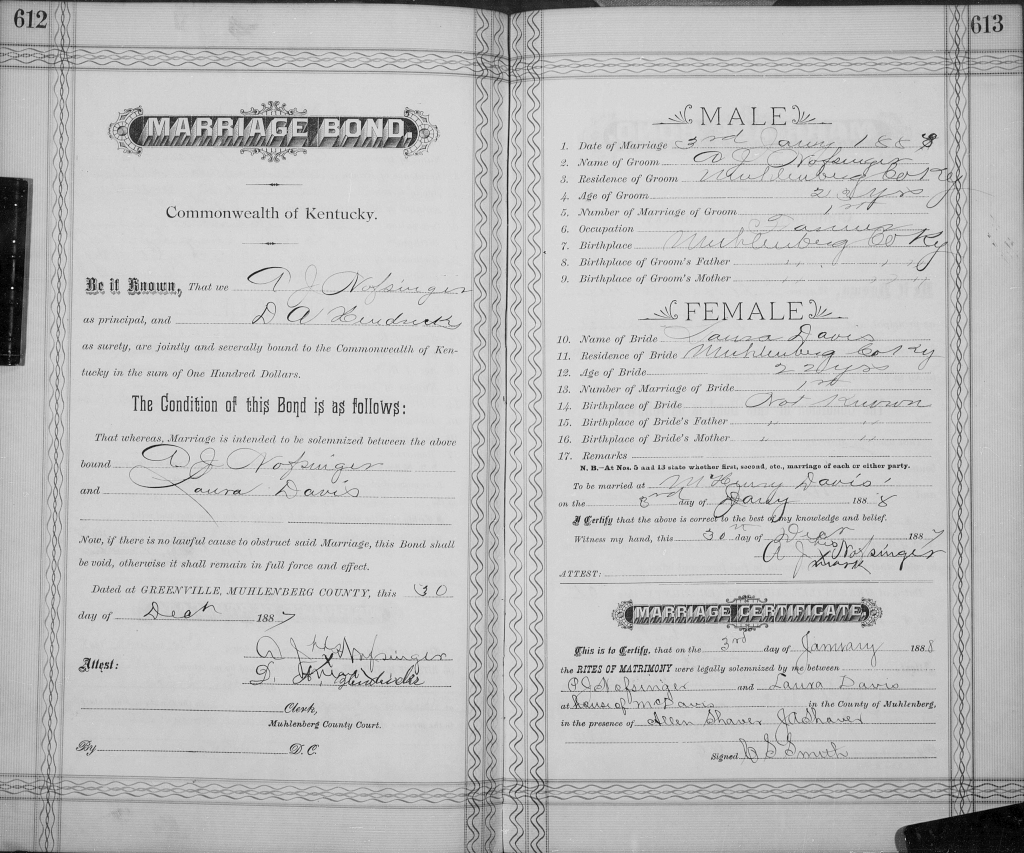 612
MARRIAGE BOND,
Commonwealth of Kentucky.
Be it Known, That we A J Nofsinger
as principal, and D A Hendricks
as surety, are jointly and severally bound to the Commonwealth of Ken-
tucky in the sum of One Hundred Dollars.
The Condition of this Bond is as follows:
That whereas, Marriage is intended to be solemnized between the above
bound A J Nofsinger
and Laura Davis
Now, if there is no lawful cause to obstruct said Marriage, this Bond shall
be void, otherwise it shall remain in full force and effect.
Dated at GREENVILLE, MUHLENBERG COUNTY, this 30
day of Dech 1887
A J his Nofsinger
Attest: D. A. Hendricks
Clerk,
Muhlenberg County Court.
By D. C.
613
MALE
1. Date of Marriage 3rd Jany 1888
2. Name of Groom A J Nofsinger
3. Residence of Groom Muhlenberg Co Ky
4. Age of Groom 23 yrs
5. Number of Marriage of Groom 1st
6. Occupation Farmer
7. Birthplace Muhlenberg Co Ky
8. Birthplace of Groom's Father " " "
9. Birthplace of Groom's Mother " " "
FEMALE
10. Name of Bride Laura Davis
11. Residence of Bride Muhlenberg Co Ky
12. Age of Bride 22 yrs
13. Number of Marriage of Bride 1st
14. Birthplace of Bride Not Known
15. Birthplace of Bride's Father " "
16. Birthplace of Bride's Mother " "
17. Remarks
N. B.—At Nos. 5 and 13 state whether first, second, etc., marriage of each or either party.
To be married at McHenry Davis'
on the 3rd day of Jany 1888
I Certify that the above is correct to the best of my knowledge and belief.
Witness my hand, this 30th day of Decr 1887
A J his x mark Nofsinger
ATTEST:
MARRIAGE CERTIFICATE,
This is to Certify, that on the 3rd day of January 1888
the RITES OF MATRIMONY were legally solemnized by me between
A J Nofsinger and Laura Davis
at house of Mc Davis in the County of Muhlenberg,
in the presence of Allen Shaver J A Shaver
Signed C E Smith